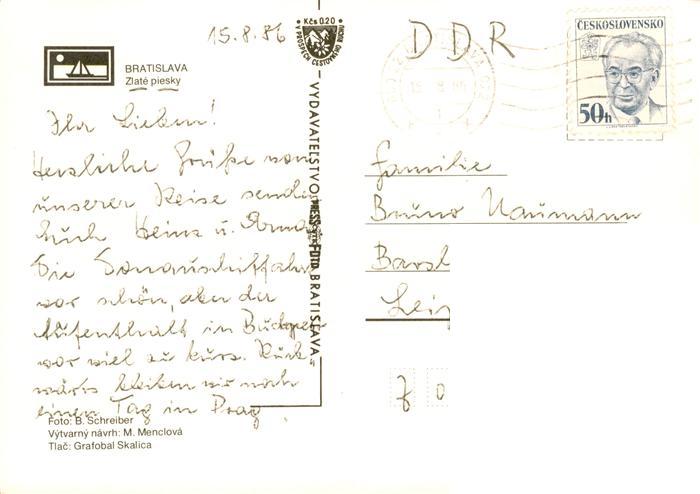 15.8.86
Kčs 0.20
V PROSPĚCH CESTOVNÉHO RUCHU
BRATISLAVA
Zlaté piesky
Ihr Lieben!
Herzliche Grüße von
unserer Reise sende
Euch Heinz u.
Die Donauschiffahrt
war schön, aber der
Aufenthalt in Budapest
war viel zu kurz. Rück-
wärts bleiben wir noch
einen Tag in Prag
Foto: B. Schreiber
Výtvarný návrh: M. Menclová
Tlač: Grafobal Skalica
VYDAVATEĽSTVO PRESSFOTO BRATISLAVA
DDR
ČESKOSLOVENSKO
50h
Familie
Bruno Naumann